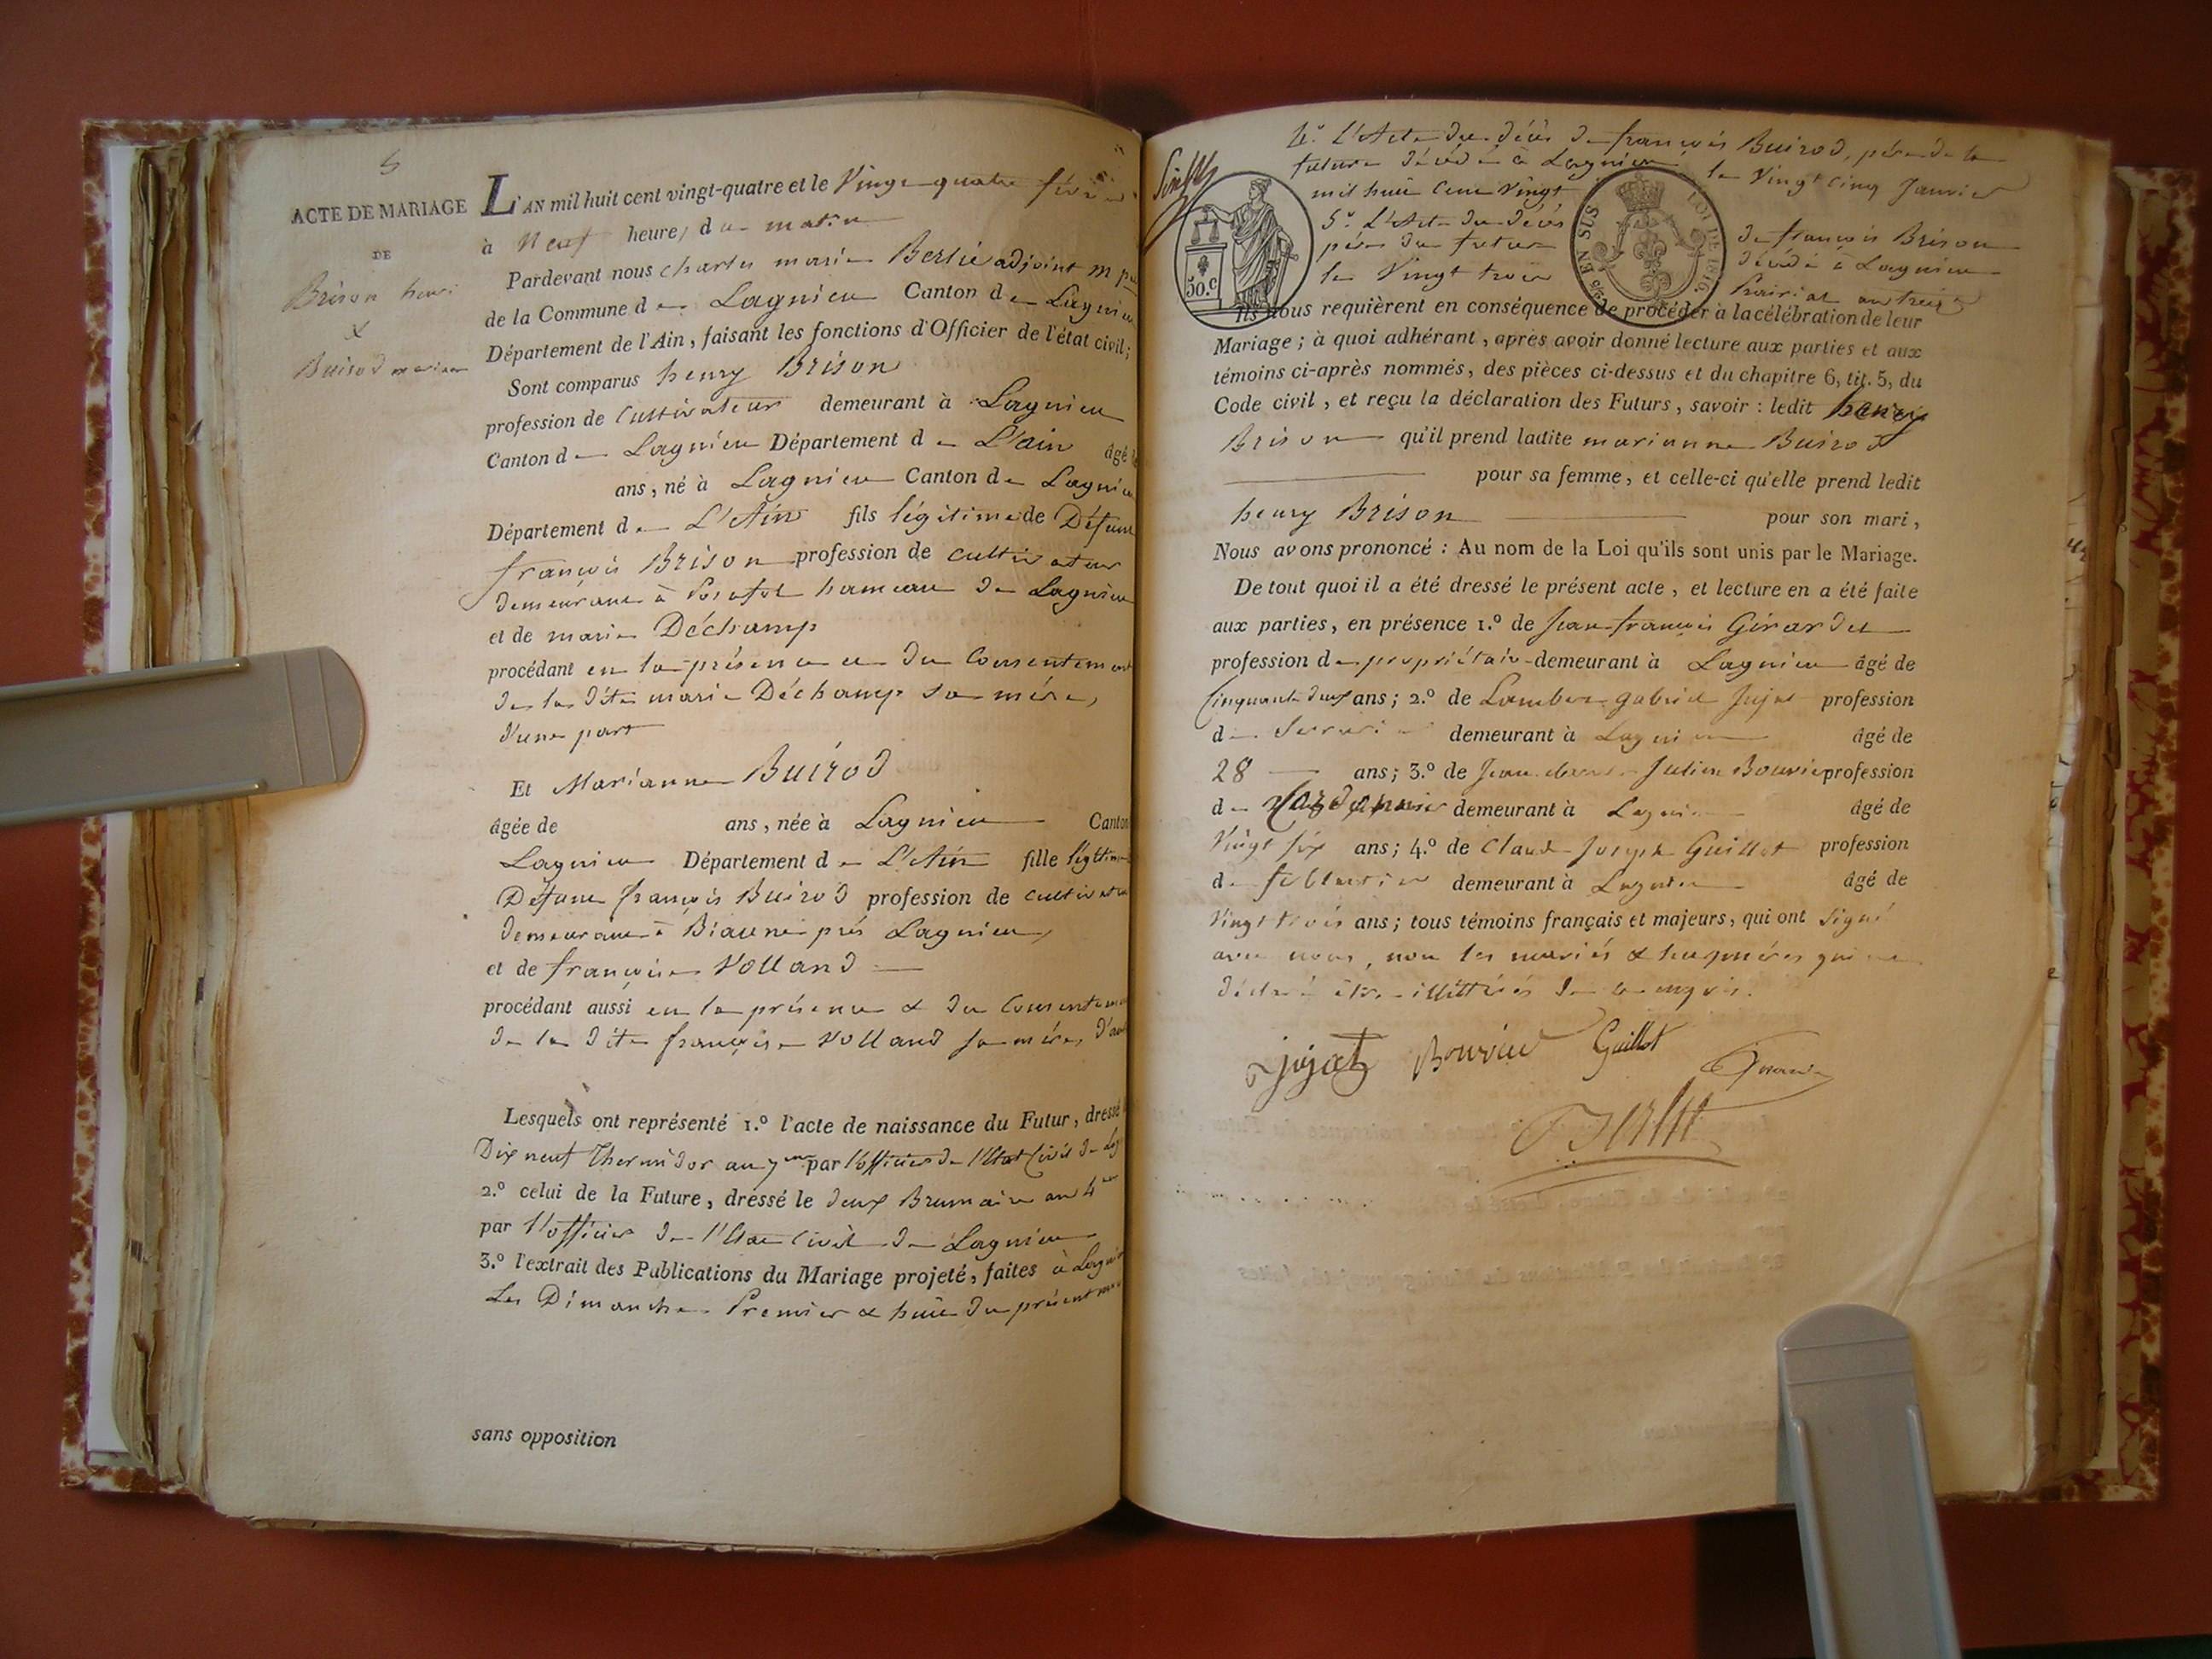 5
ACTE DE MARIAGE
DE
Brison henri
&
Buirod marianne
L'AN mil huit cent vingt-quatre et le Vingt quatre février
à Neuf heures du matin
Pardevant nous Charles marie Berlié adjoint
de la Commune de Lagnieu Canton de Lagnieu
Département de l'Ain, faisant les fonctions d'Officier de l'état civil;
Sont comparus henry Brison
profession de Cultivateur demeurant à Lagnieu
Canton de Lagnieu Département de L'ain âgé
ans, né à Lagnieu Canton de Lagnieu
Département de L'Ain fils légitime de Défunt
françois Brison profession de cultivateur
demeurant à hameau de Lagnieu
et de marie Déchamp
procédant en la présence et du Consentement
de la dite marie Déchamp sa mère,
d'une part
Et Marianne Buirod
âgée de ans, née à Lagnieu Canton
Lagnieu Département de L'Ain fille légitime
Défunt françois Buirod profession de cultivateur
demeurant à Biaune près Lagnieu,
et de françoise Volland
procédant aussi en la présence & du Consentement
de la dite françoise Volland sa mère, d'au
Lesquels ont représenté 1.º l'acte de naissance du Futur, dressé
Dix neuf Thermidor an 7me par l'officier de l'Etat Civil de Lag
2.º celui de la Future, dressé le deux Brumaire an 4me
par l'officier de l'Etat Civil de Lagnieu
3.º l'extrait des Publications du Mariage projeté, faites à Lagnieu
Les Dimanches Premier & huit du présent mois
sans opposition
4º L'Acte du décès de françois Buirod, père de la
future décédé à Lagnieu le Vingt cinq Janvier
mil huit Cent Vingt
5º L'Acte du décès de françois Brison
père du futur décédé à Lagnieu
le Vingt trois Prairial an treize
50.c
EN SUS
LOI DE 1816
Ils nous requièrent en conséquence de procéder à la célébration de leur
Mariage; à quoi adhérant, après avoir donné lecture aux parties et aux
témoins ci-après nommés, des pièces ci-dessus et du chapitre 6, tit. 5, du
Code civil, et reçu la déclaration des Futurs, savoir: ledit henry
Brison qu'il prend ladite marianne Buirod
pour sa femme, et celle-ci qu'elle prend ledit
henry Brison pour son mari,
Nous avons prononcé: Au nom de la Loi qu'ils sont unis par le Mariage.
De tout quoi il a été dressé le présent acte, et lecture en a été faite
aux parties, en présence 1.º de Jean françois Girardet
profession de propriétaire demeurant à Lagnieu âgé de
Cinquante deux ans; 2.º de Lambert gabriel Jujat profession
de Serrurier demeurant à Lagnieu âgé de
28 ans; 3.º de Jean Julien Bouvier profession
de demeurant à Lagnieu âgé de
Vingt six ans; 4.º de Claude Joseph Guillot profession
de ferblantier demeurant à Lagnieu âgé de
Vingt trois ans; tous témoins français et majeurs, qui ont signé
avec nous, non les mariés & leurs mères qui
déclaré être illittérés de ce enquis.
jujat Bouvier Guillot